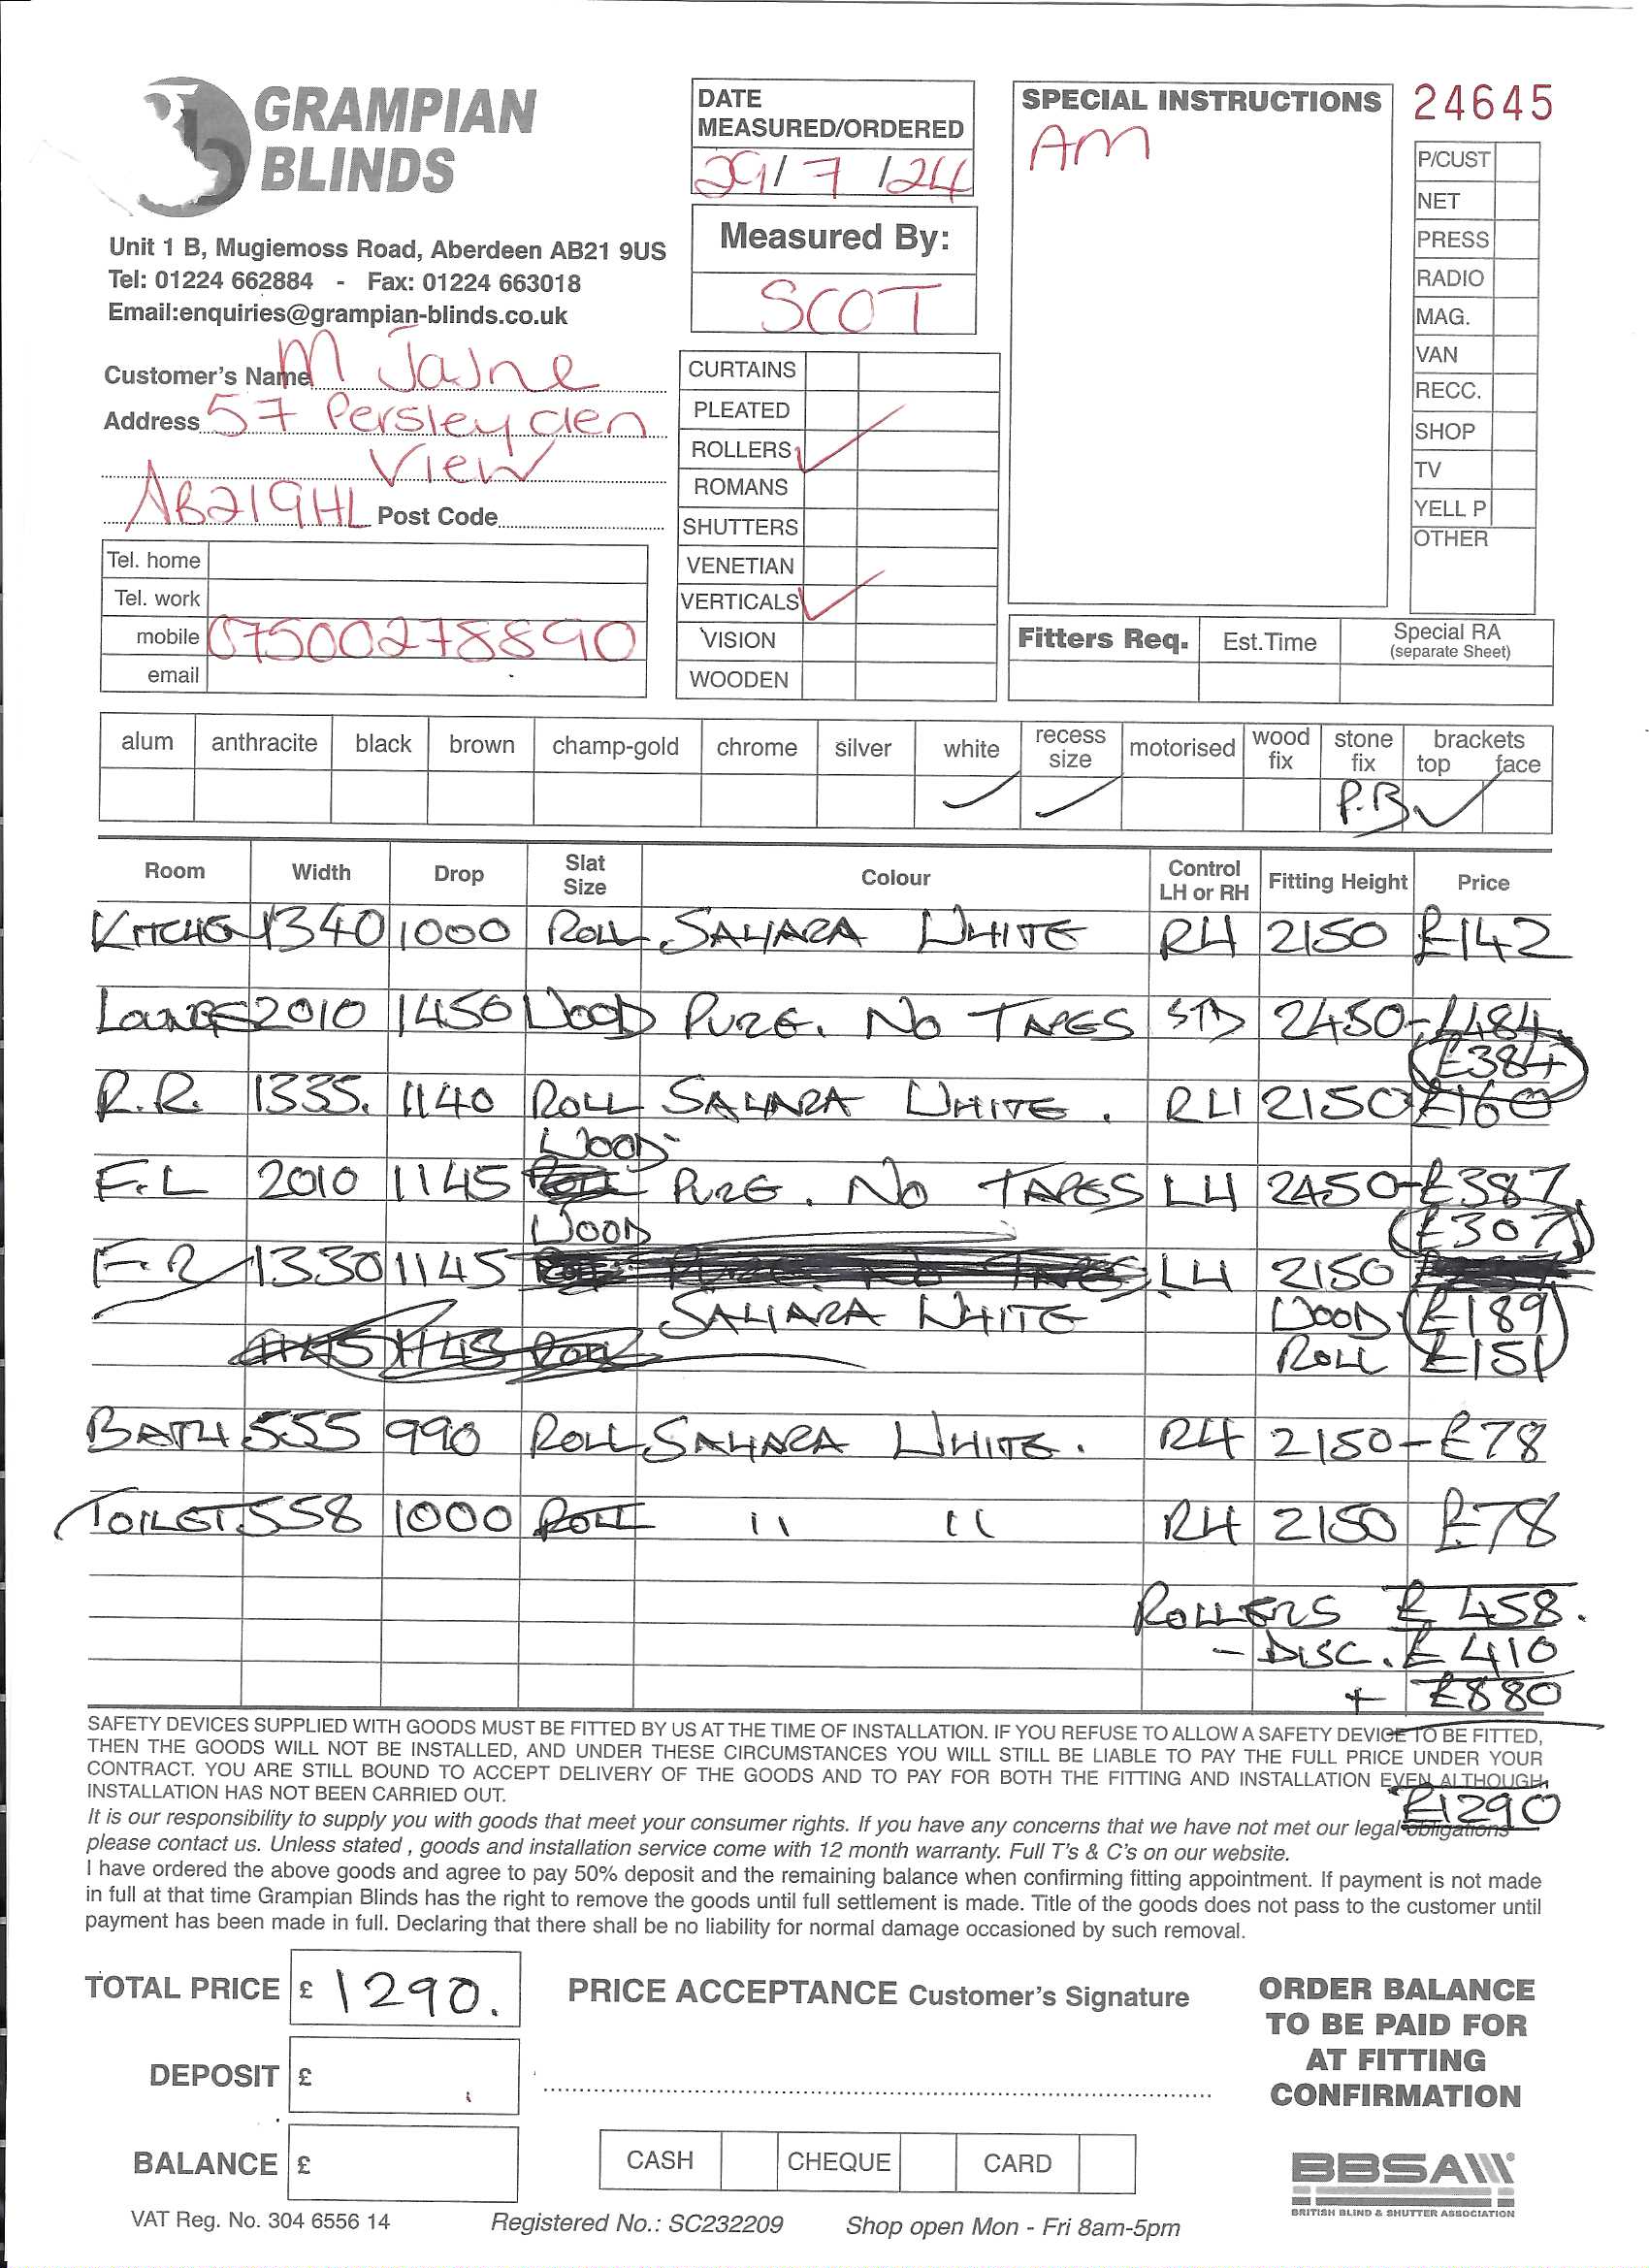 GRAMPIAN
BLINDS
Unit 1 B, Mugiemoss Road, Aberdeen AB21 9US
Tel: 01224 662884 - Fax: 01224 663018
Email:enquiries@grampian-blinds.co.uk
DATE
MEASURED/ORDERED
29/7/24
Measured By:
SCOT
SPECIAL INSTRUCTIONS
AM
24645
P/CUST
NET
PRESS
RADIO
MAG.
VAN
RECC.
SHOP
TV
YELL P
OTHER
Customer's Name M Jayne
Address 57 Persley den
View
AB219HL Post Code
Tel. home
Tel. work
mobile 07500278890
email
CURTAINS
PLEATED
ROLLERS ✓
ROMANS
SHUTTERS
VENETIAN
VERTICALS ✓
VISION
WOODEN
Fitters Req. Est.Time Special RA
(separate Sheet)
alum anthracite black brown champ-gold chrome silver white recess size motorised wood fix stone fix brackets top face
✓ ✓ P.B ✓
Room Width Drop Slat Size Colour Control LH or RH Fitting Height Price
KITCHEN 1340 1000 ROLL SAHARA WHITE RH 2150 £142
LOUNGE 2010 1450 WOOD PURE. NO TAPES STD 2450 - £484
£384
R.R. 1335. 1140 ROLL SAHARA WHITE. RH 2150 £160
WOOD
F.L 2010 1145 PURE. NO TAPES LH 2450 - £387
£307
WOOD
F.R 1330 1145 LH 2150
SAHARA WHITE WOOD £189
ROLL £151
BATH 555 990 ROLL SAHARA WHITE. RH 2150 - £78
TOILET 558 1000 ROLL " " RH 2150 £78
ROLLERS £458.
- DISC. £410
+ £880
£1290
SAFETY DEVICES SUPPLIED WITH GOODS MUST BE FITTED BY US AT THE TIME OF INSTALLATION. IF YOU REFUSE TO ALLOW A SAFETY DEVICE TO BE FITTED,
THEN THE GOODS WILL NOT BE INSTALLED, AND UNDER THESE CIRCUMSTANCES YOU WILL STILL BE LIABLE TO PAY THE FULL PRICE UNDER YOUR
CONTRACT. YOU ARE STILL BOUND TO ACCEPT DELIVERY OF THE GOODS AND TO PAY FOR BOTH THE FITTING AND INSTALLATION EVEN ALTHOUGH
INSTALLATION HAS NOT BEEN CARRIED OUT.
It is our responsibility to supply you with goods that meet your consumer rights. If you have any concerns that we have not met our legal obligations
please contact us. Unless stated , goods and installation service come with 12 month warranty. Full T's & C's on our website.
I have ordered the above goods and agree to pay 50% deposit and the remaining balance when confirming fitting appointment. If payment is not made
in full at that time Grampian Blinds has the right to remove the goods until full settlement is made. Title of the goods does not pass to the customer until
payment has been made in full. Declaring that there shall be no liability for normal damage occasioned by such removal.
TOTAL PRICE £ 1290.
DEPOSIT £
BALANCE £
PRICE ACCEPTANCE Customer's Signature
CASH CHEQUE CARD
ORDER BALANCE
TO BE PAID FOR
AT FITTING
CONFIRMATION
BBSA
BRITISH BLIND & SHUTTER ASSOCIATION
VAT Reg. No. 304 6556 14 Registered No.: SC232209 Shop open Mon - Fri 8am-5pm